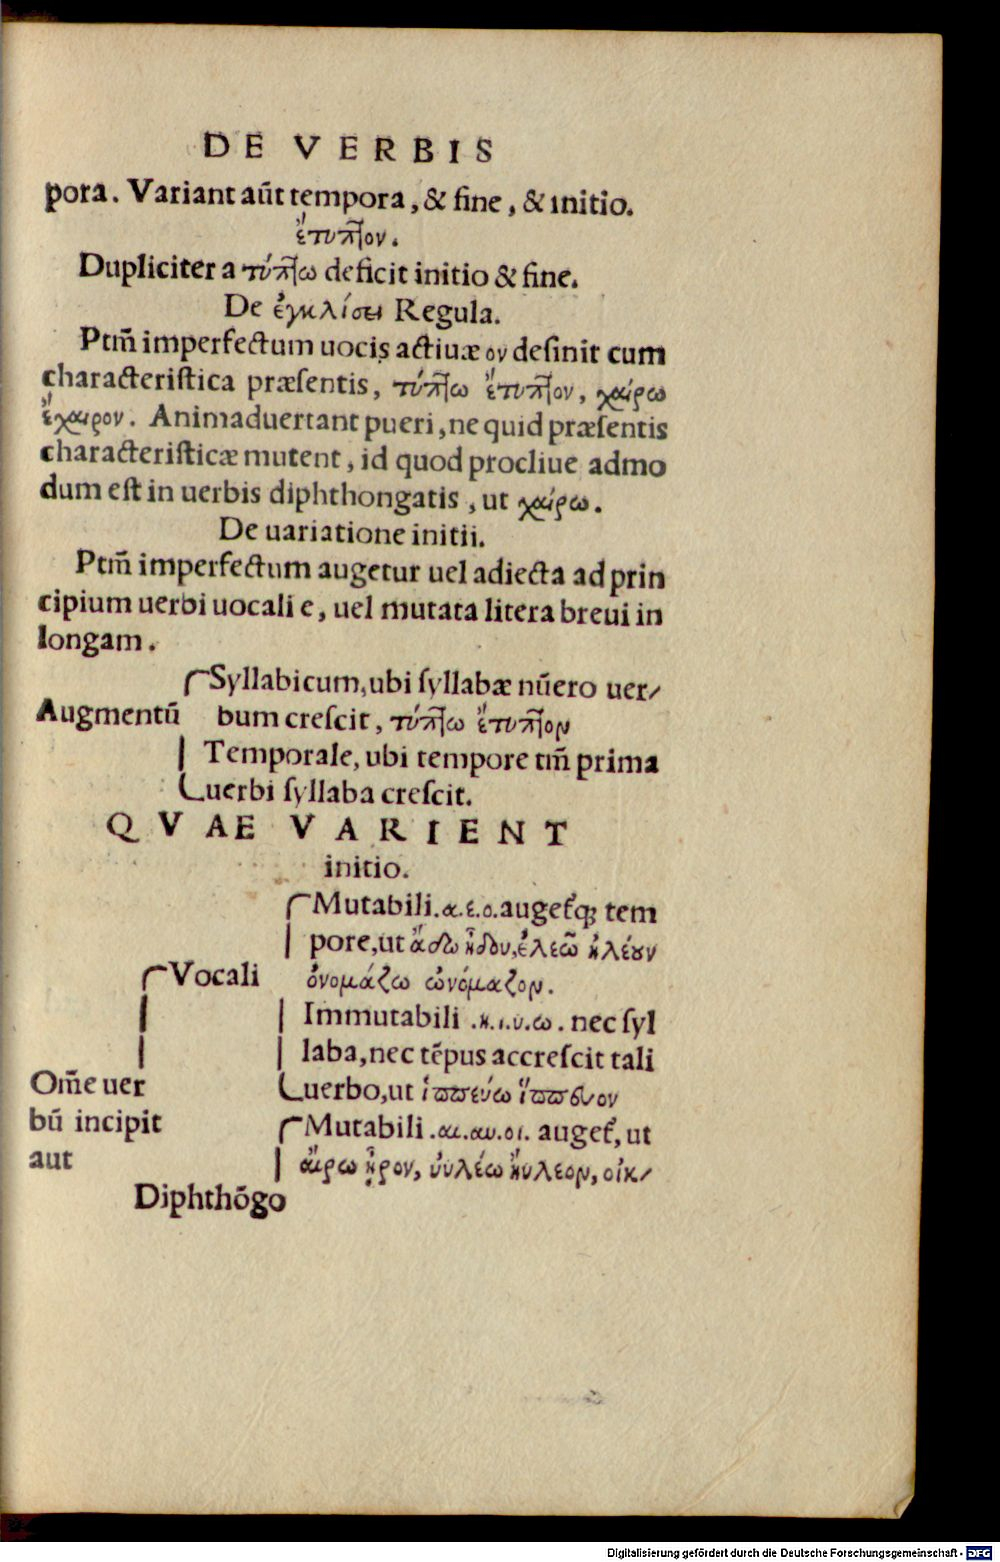 DE VERBIS
pora. Variant aūt tempora, & fine, & initio.
ἔτυπτον.
Dupliciter a τύπτω deficit initio & fine.
De ἐγκλίσει Regula.
Ptm̄ imperfectum uocis actiuæ ον desinit cum
characteristica præsentis, τύπτω ἔτυπτον, χαίρω
ἔχαιρον. Animaduertant pueri, ne quid præsentis
characteristicæ mutent, id quod procliue admo
dum est in uerbis diphthongatis, ut χαίρω.
De uariatione initii.
Ptm̄ imperfectum augetur uel adiecta ad prin
cipium uerbi uocali e, uel mutata litera breui in
longam.
Syllabicum, ubi syllabæ nūero uer/
Augmentū bum crescit, τύπτω ἔτυπτον
Temporale, ubi tempore tm̄ prima
uerbi syllaba crescit.
QVAE VARIENT
initio.
Mutabili .α.ε.ο. auget́q; tem
pore, ut ἄδω ἦδον, ἐλεῶ ἠλέουν
Vocali ὀνομάζω ὠνόμαζον.
Immutabili .η.ι.υ.ω. nec syl
laba, nec tēpus accrescit tali
Om̄e uer uerbo, ut ἱππεύω ἵππευον
bū incipit Mutabili .αι.αυ.οι. auget́, ut
aut αἴρω ᾖρον, ἀυλέω ἤυλεον, οἰκ/
Diphthōgo
Digitalisierung gefördert durch die Deutsche Forschungsgemeinschaft - DFG